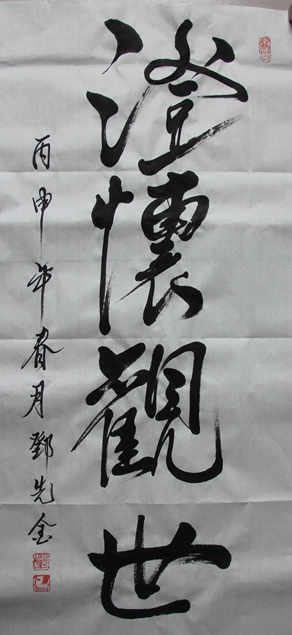 澄懷觀世
丙申年春月鄧先金